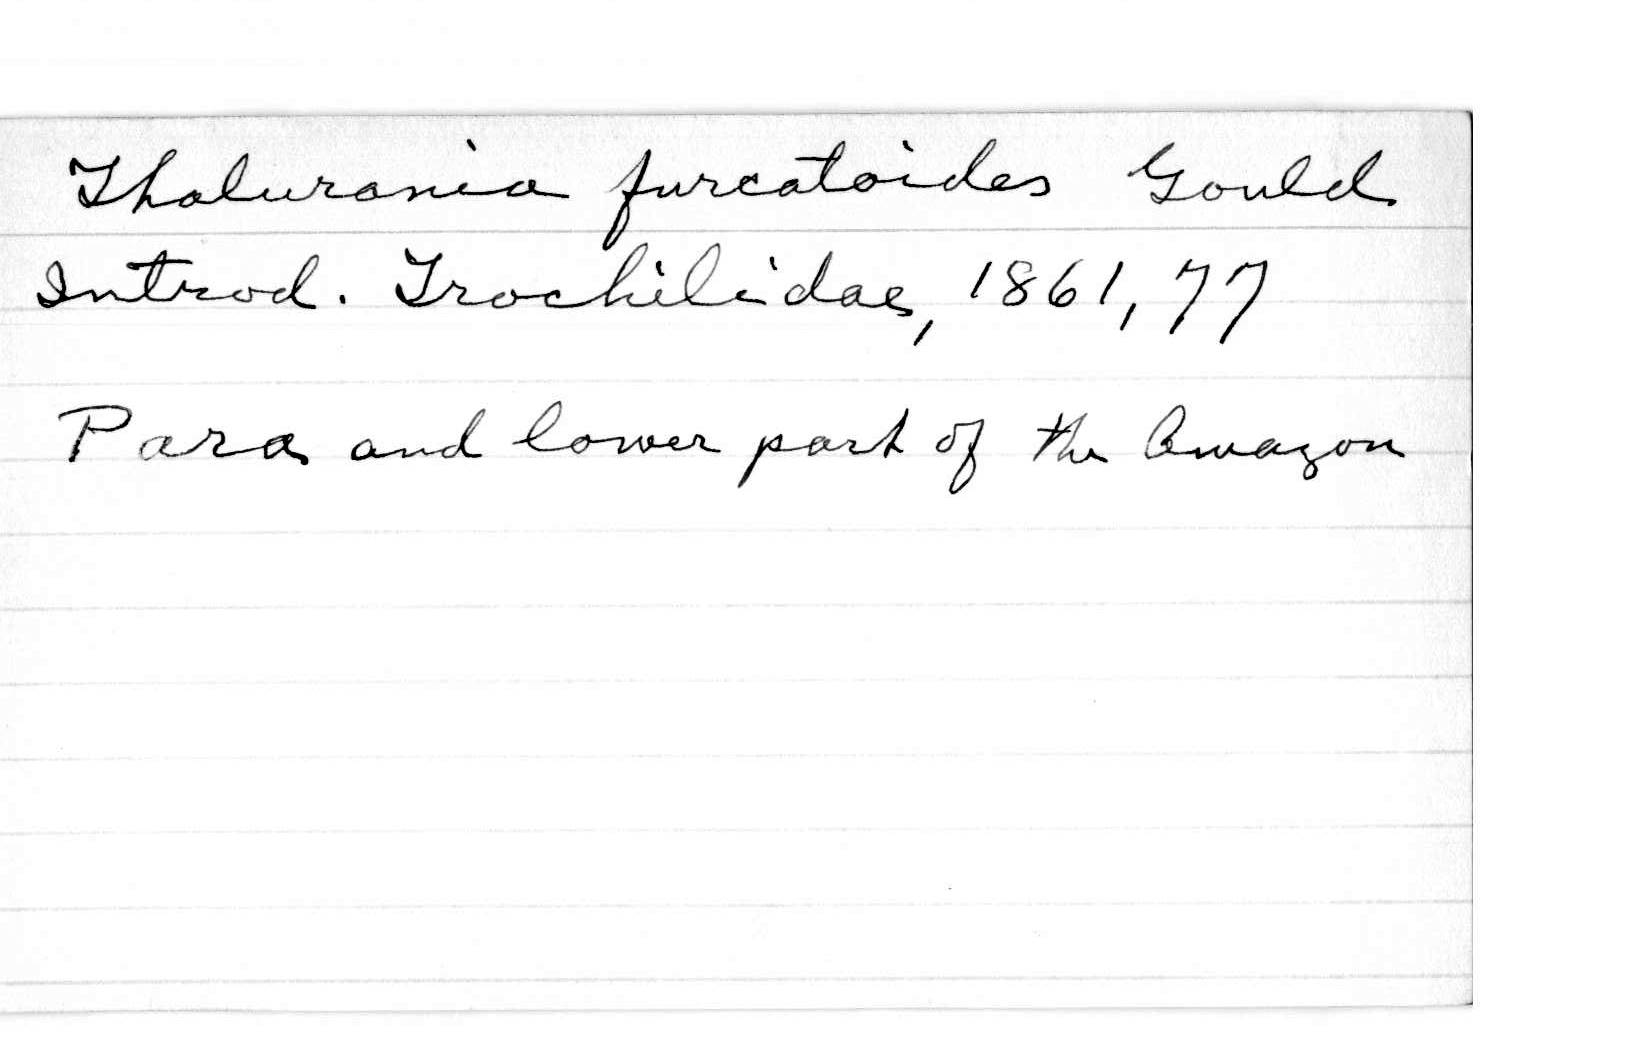 Thalurania furcatoides Gould
Introd. Trochilidae, 1861, 77
Para and lower part of the Amazon